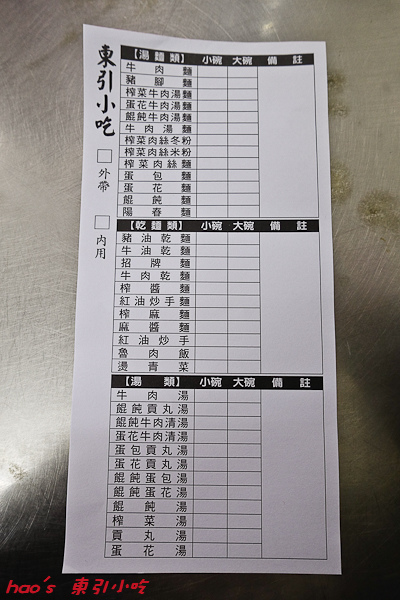 東引小吃
外帶
內用
【湯麵類】 小碗 大碗 備註
牛肉麵
豬腳麵
榨菜牛肉湯麵
蛋花牛肉湯麵
餛飩牛肉湯麵
牛肉湯麵
榨菜肉絲冬粉
榨菜肉絲米粉
榨菜肉絲麵
蛋包麵
蛋花麵
餛飩麵
陽春麵
【乾麵類】 小碗 大碗 備註
豬油乾麵
牛油乾麵
招牌麵
牛肉乾麵
榨醬麵
紅油炒手麵
榨麻麵
麻醬麵
紅油炒手
魯肉飯
燙青菜
【湯類】 小碗 大碗 備註
牛肉湯
餛飩貢丸湯
餛飩牛肉清湯
蛋花牛肉清湯
蛋包貢丸湯
蛋花貢丸湯
餛飩蛋包湯
餛飩蛋花湯
餛飩湯
榨菜湯
貢丸湯
蛋花湯
hao's 東引小吃